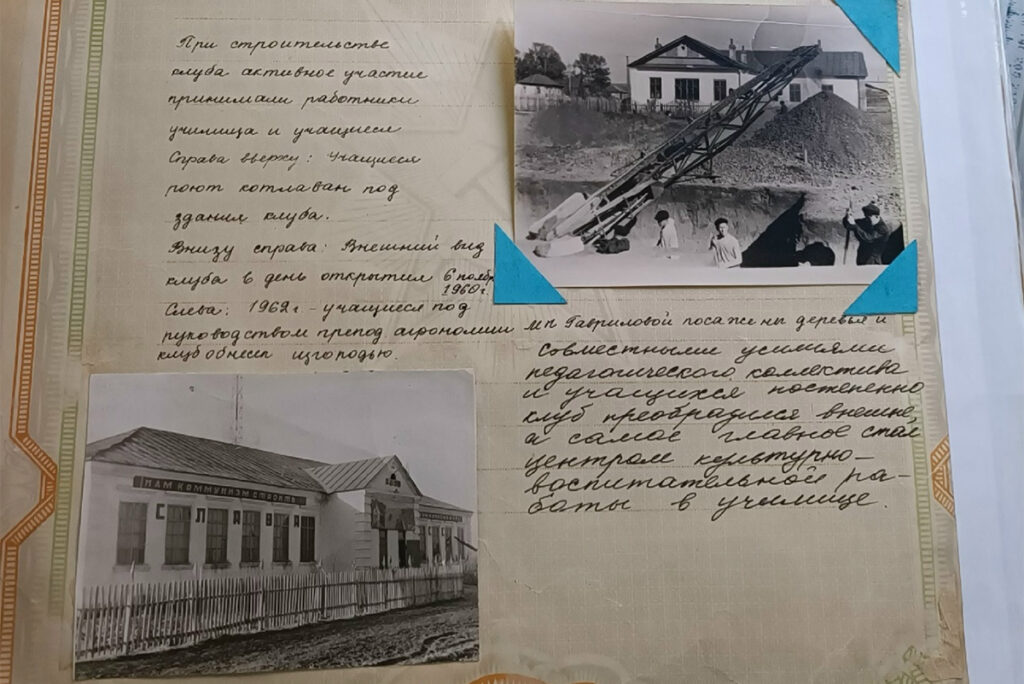 При строительстве
клуба активное участие
принимали работники
училища и учащиеся
Справа вверху: Учащиеся
роют котлован под
здания клуба.
Внизу справа: Внешний вид
клуба в день открытия 6 ноябр
1960г.
Слева: 1962г - учащиеся под
руководством препод агрономии МП Гавриловой посажены деревья и
клуб обнесен изгородью.
Совместными усилиями
педагогического коллектива
и учащихся постепенно
клуб преобразился внешне,
а самое главное стал
центром культурно-
воспитательной ра-
боты в училище
НАМ КОММУНИЗМ СТРОИТЬ
СЛАВА